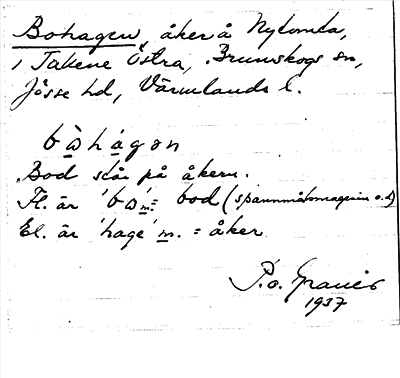 Bohagen, åker å Nytomta,
i Takene Östra, Brunskogs sn,
Jösse hd, Värmlands l.
bωhagən
Bod står på åkern.
Fl. är 'bω' m. = bod (spannmålsmagasin o.d)
El. är 'hage' m. = åker
P.o. Graner
1937